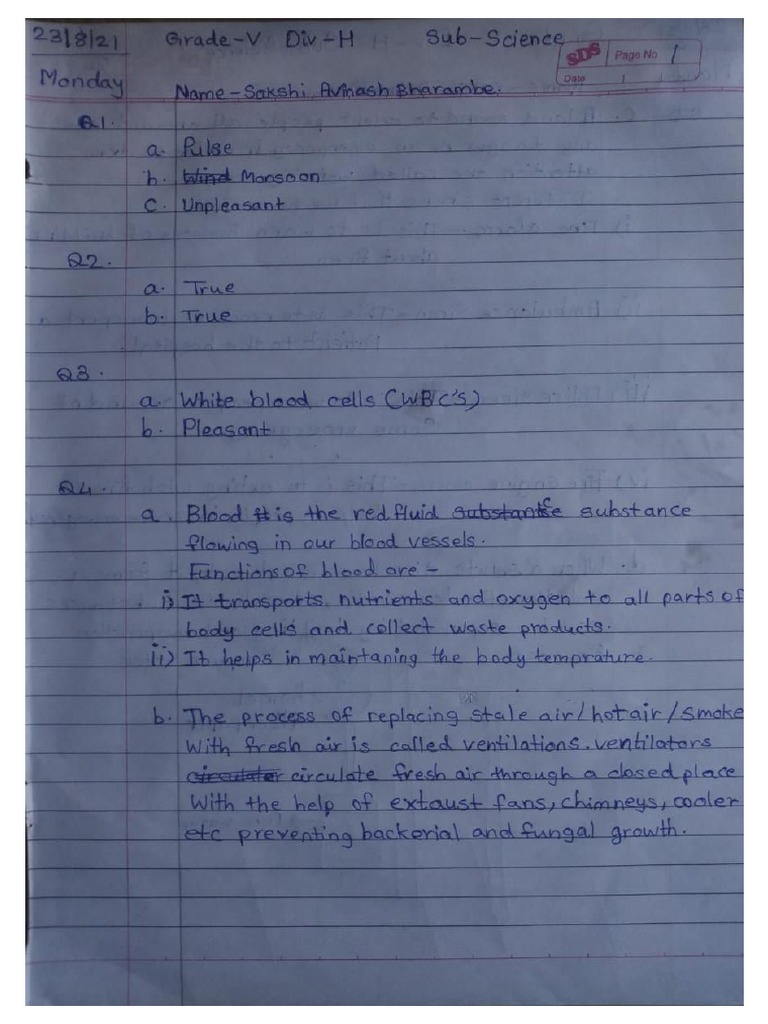 23/8/21 Grade-V Div-H Sub-Science
SDS Page No 1
Date
Monday
Name-Sakshi Avinash Bharambe.
Q1.
a. Pulse
b. Wind Monsoon
c. Unpleasant
Q2.
a. True
b. True
Q3.
a. White blood cells (WBC's)
b. Pleasant
Q4.
a. Blood is the red fluid substance
flowing in our blood vessels.
Functions of blood are -
i) It transports nutrients and oxygen to all parts of
body cells and collect waste products.
ii) It helps in maintaning the body temprature.
b. The process of replacing stale air/hot air/smoke
With fresh air is called ventilations. ventilators
circulate fresh air through a closed place
With the help of extaust fans, chimneys, cooler
etc preventing backerial and fungal growth.